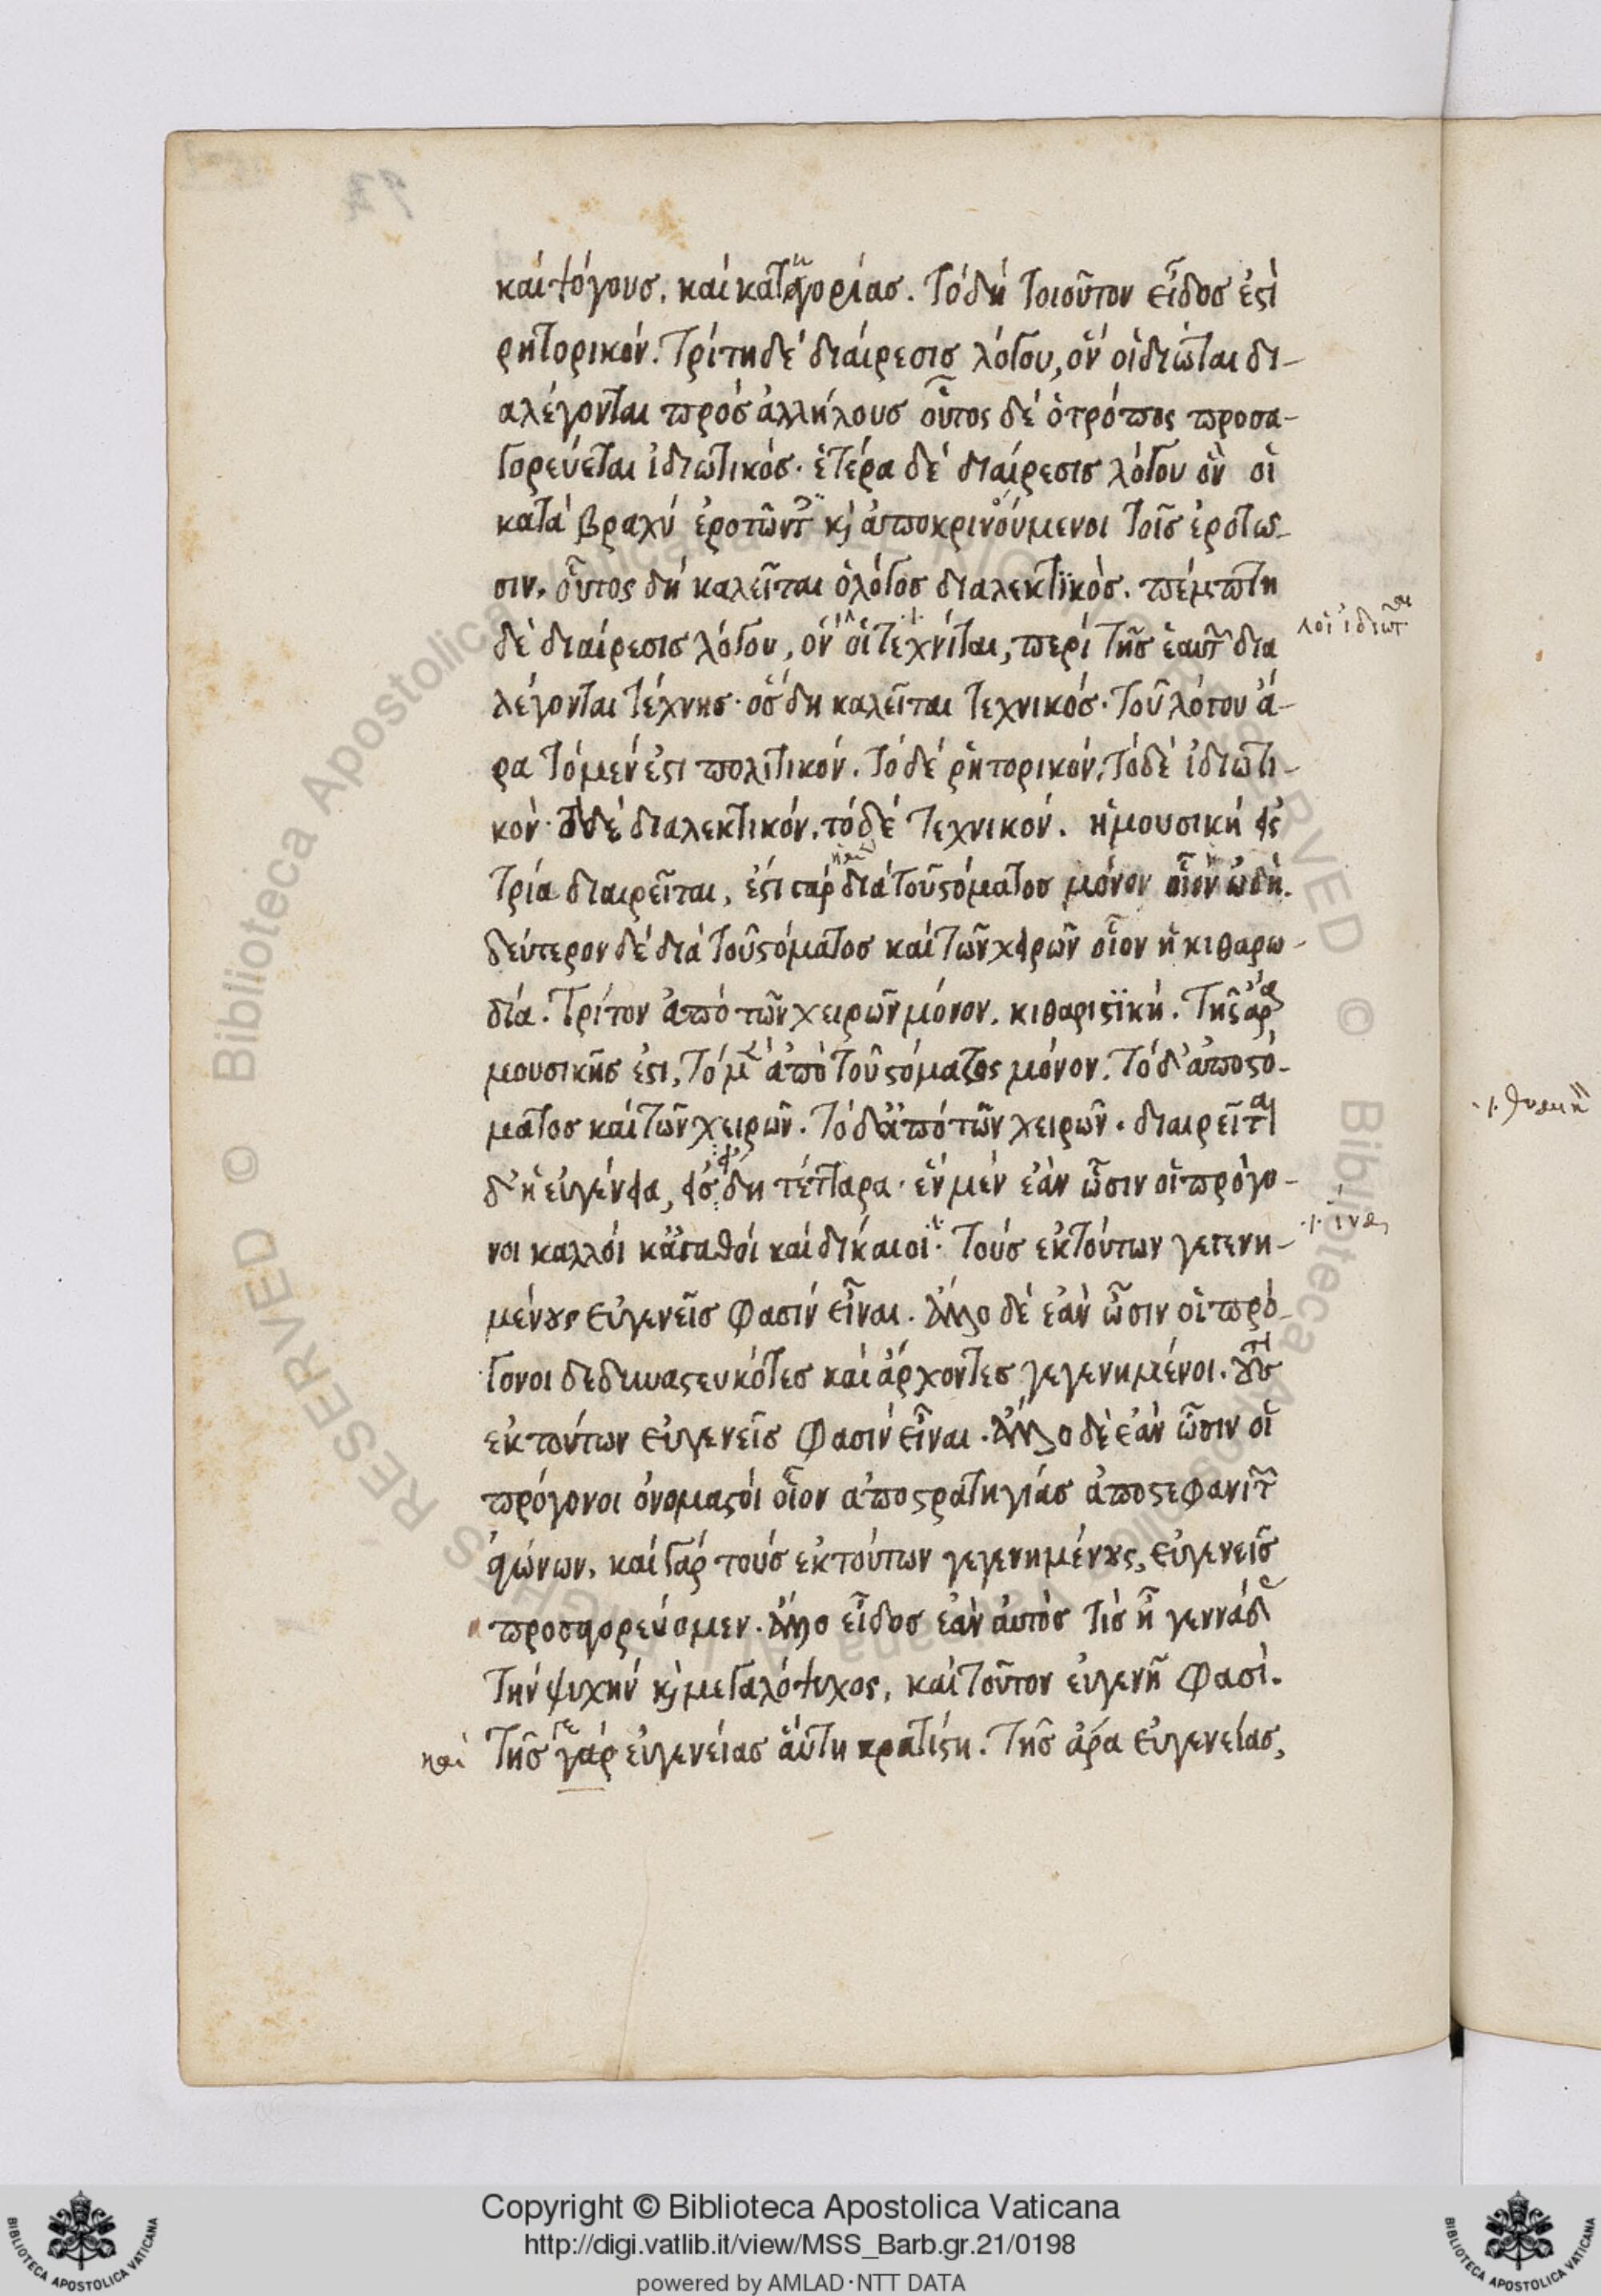 καὶ ψόγους, καὶ κατηγορίας. Τὸ δὴ τοιοῦτον εἶδος ἐστὶ
ρητορικόν. Τρίτη δὲ διαίρεσις λόγου, ὃν οἱ διῶται δι-
αλέγονται πρὸς ἀλλήλους οὗτος δὲ ὁ τρόπος προσα-
γορεύεται ἰδιωτικός. ἑτέρα δὲ διαίρεσις λόγου ὃν οἱ
κατὰ βραχὺ ἐροτῶντ καὶ ἀποκρινούμενοι τοῖς ἐροτῶς-
σιν. οὗτος δὴ καλεῖται ὁ λόγος διαλεκτϊκὸς. πέμπτη
δὲ διαίρεσις λόγου, ὃν οἱ τεχνίται, περὶ τῆς ἑαυτ δια
λοἱ ἰδιῶται
λέγονται τέχνης. ὃς δὴ καλεῖται τεχνικός. Τοῦ λόγου ἄ-
ρα τὸ μέν ἐστι πολιτικόν. τὸ δὲ ρητορικόν. τὸ δὲ ἰδιωτι-
κὸν. τὸ δὲ διαλεκτικόν. τὸ δὲ τεχνικόν. ἡ μουσικὴ εἰς
τρία διαιρεῖται, ἐστι γὰρ διὰ τοῦ στόματος μόνον οἷον ὠδὴ.
δεύτερον δὲ διὰ τοῦ στόματος καὶ τῶν χειρῶν οἷον ἡ κιθαρω-
δία. Τρίτον ἀπὸ τῶν χειρῶν μόνον. κιθαριστϊκή. Τῆς ἄρα
μουσικῆς ἐστι, τὸ μὲν ἀπὸ τοῦ στόματος μόνον. τὸ δ' ἀπὸ στό-
ματος καὶ τῶν χειρῶν. τὸ δ' ἀπὸ τῶν χειρῶν. διαιρεῖται
δ' ἡ εὐγένεια, εἰς δὴ τέτταρα. ἓν μὲν ἐὰν ὦσιν οἱ πρόγο-
νοι καλλοὶ κἀγαθοὶ καὶ δίκαιοι. τοὺς ἐκ τούτων γεγενη-
μένους εὐγενεῖς φασὶν εἶναι. ἄλλο δὲ ἐὰν ὦσιν οἱ πρό-
γονοι δεδυναστευκότες καὶ ἄρχοντες γεγενημένοι. τοὺς
ἐκ τούτων εὐγενεῖς φασὶν εἶναι. ἄλλο δὲ ἐὰν ὦσιν οἱ
πρόγονοι ὀνομαστοὶ οἷον ἀπὸ στρατηγίας ἀπὸ στεφανιτ
ἀγώνων. καὶ γὰρ τοὺς ἐκ τούτων γεγενημένους, εὐγενεῖς
προσαγορεύομεν. ἄλλο εἶδος ἐὰν αὐτὸς τὶς ἦ γεννάδ
τὴν ψυχὴν καὶ μεγαλόψυχος, καὶ τοῦτον εὐγενῆ φασὶ.
καὶ τῆς γὰρ εὐγενείας αὕτη κρατίστη. Τῆς ἄρα εὐγενείας,
Copyright © Biblioteca Apostolica Vaticana
http://digi.vatlib.it/view/MSS_Barb.gr.21/0198
powered by AMLAD·NTT DATA
BIBLIOTECA APOSTOLICA VATICANA
BIBLIOTECA APOSTOLICA VATICANA